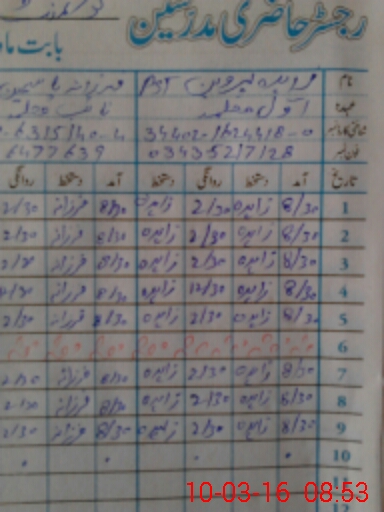 رجسٹر حاضری مدرسین
بابت ماہ
نام زاہدہ پروین PST فرزانہ یاسمین
عہدہ اول معلمہ نائب معلمہ
34402-1624418-0 6315140-4
03435217128 6477639
تاریخ آمد دستخط روانگی دستخط آمد دستخط روانگی
1 8/30 زاہدہ 2/30 زاہدہ 8/30 فرزانہ 2/30
2 8/30 زاہدہ 2/30 زاہدہ 8/30 فرزانہ 2/30
3 8/30 زاہدہ 2/30 زاہدہ 8/30 فرزانہ 2/30
4 8/30 زاہدہ 12/30 زاہدہ 8/30 فرزانہ
5 8/30 زاہدہ 2/30 زاہدہ 8/30 فرزانہ 2/30
6
7 8/30 زاہدہ 2/30 زاہدہ 8/30 فرزانہ 2/30
8 8/30 زاہدہ 2/30 زاہدہ 8/30 فرزانہ 2/30
9 8/30 زاہدہ 2/30 زاہدہ 8/30 فرزانہ 2/30
10
11
12
10-03-16 08:53